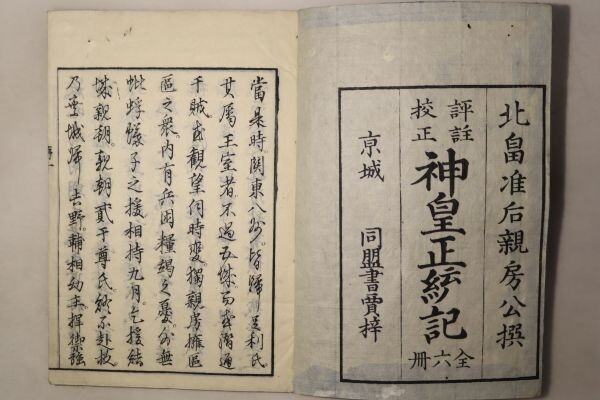 北畠准后親房公撰
評註
校正
神皇正統記
全六冊
京城
同盟書賈梓
當是時關東八州皆歸足利氏
其屬王室者不過五城而或潛通
于賊或觀望伺時變獨親房擁區
區之衆内有兵困糧竭之憂外無
蚍蜉蟻子之援相持九月乞援結
城親朝親朝貳于尊氏終不赴救
乃棄城歸吉野輔相幼主揮禦強
序一